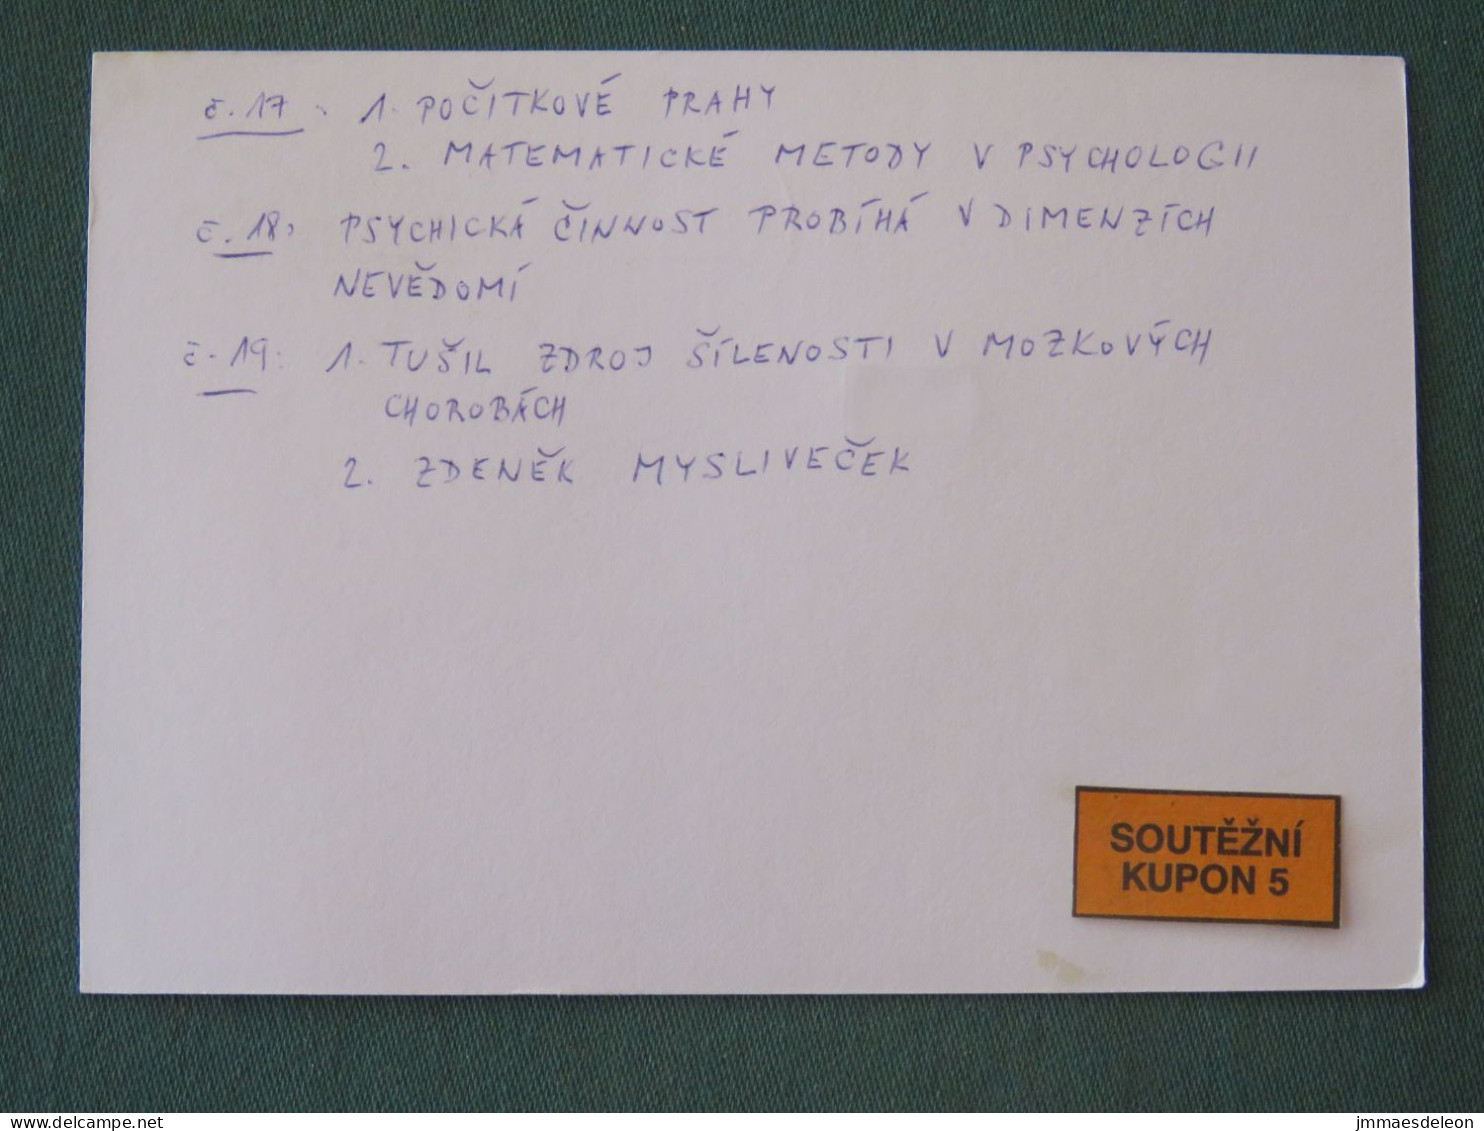 č. 17: 1. POČITKOVÉ PRAHY
2. MATEMATICKÉ METODY V PSYCHOLOGII
č. 18: PSYCHICKÁ ČINNOST PROBÍHÁ V DIMENZÍCH
NEVĚDOMÍ
č. 19: 1. TUŠIL ZDROJ ŠÍLENOSTI V MOZKOVÝCH
CHOROBÁCH
2. ZDENĚK MYSLIVEČEK
SOUTĚŽNÍ
KUPON 5
delcampe.net
jmmaesdeleon